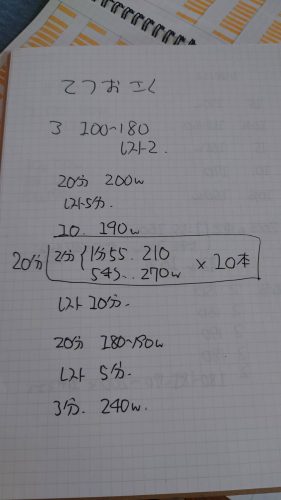 てつおさん
3 100~180
レスト2.
20分 200w
レスト5分.
10. 190w
20分 2分 { 1分55.. 210
545... 270w × 10本
レスト 10分.
20分 180~190w
レスト 5分.
3分. 240w.